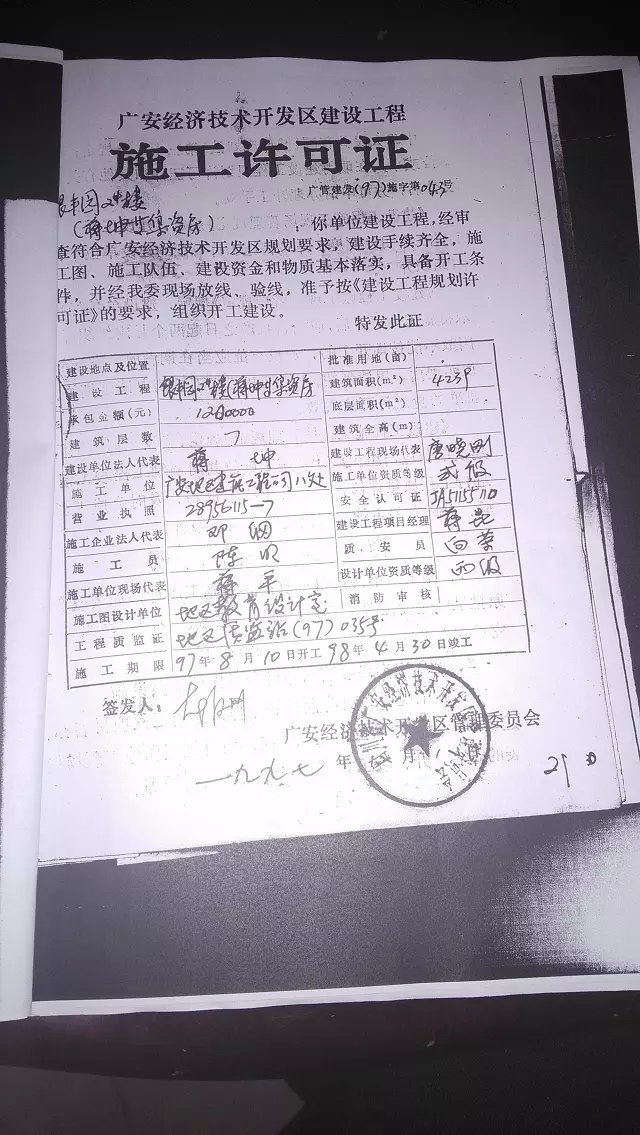 广安经济技术开发区建设工程
施工许可证
广管建发(97)施字第043号
(蒋坤等集资房)
,你单位建设工程,经审
查符合广安经济技术开发区规划要求,建设手续齐全,施
工图、施工队伍、建设资金和物质基本落实,具备开工条
件,并经我委现场放线、验线,准予按《建设工程规划许
可证》的要求,组织开工建设。
特发此证
建设地点及位置 批准用地(亩)
建设工程 蒋坤等集资房 建筑面积(m²) 4239
承包金额(元) 底层面积(m²)
建筑层数 7 建筑全高(m)
建设单位法人代表 蒋坤 建设工程现场代表 唐晓刚
施工单位 施工单位资质等级 贰级
营业执照 28956115-7 安全认可证 JA5115110
施工企业法人代表 邓钢 建设工程项目经理 蒋昆
施工员 陈明 质安员 向荣
施工单位现场代表 蒋平 设计单位资质等级 丙级
施工图设计单位 地区教育设计室 消防审核
工程质监证 地区质监站(97)035号
施工期限 97年8月10日开工98年4月30日竣工
签发人:
广安经济技术开发区管理委员会
一九九七年 月
29